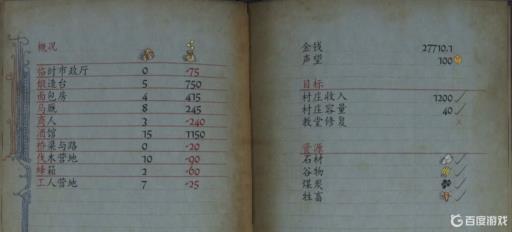 概况
临时市政厅 0 -75
锻造台 5 750
面包房 4 415
马厩 8 245
商人 3 -240
酒馆 15 1150
桥梁与路 0 -20
伐木营地 10 -90
蜂箱 2 -60
工人营地 7 -25
金钱 27710.1
声望 100
目标
村庄收入 1200
村庄容量 40
教堂修复
资源
石材
谷物
煤炭
牲畜
百度游戏